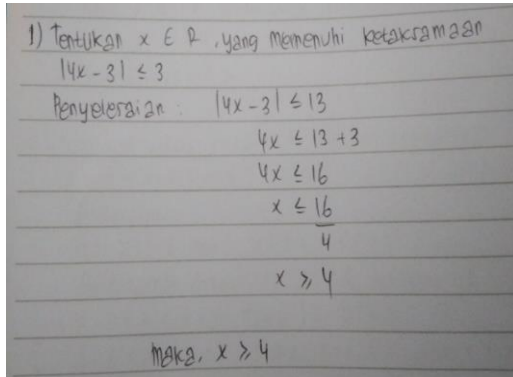 1) Tentukan x ∈ R, yang memenuhi ketaksamaan
|4x - 3| ≤ 3
Penyelesaian : |4x - 3| ≤ 13
4x ≤ 13 + 3
4x ≤ 16
x ≤ 16/4
x ≥ 4
maka, x ≥ 4